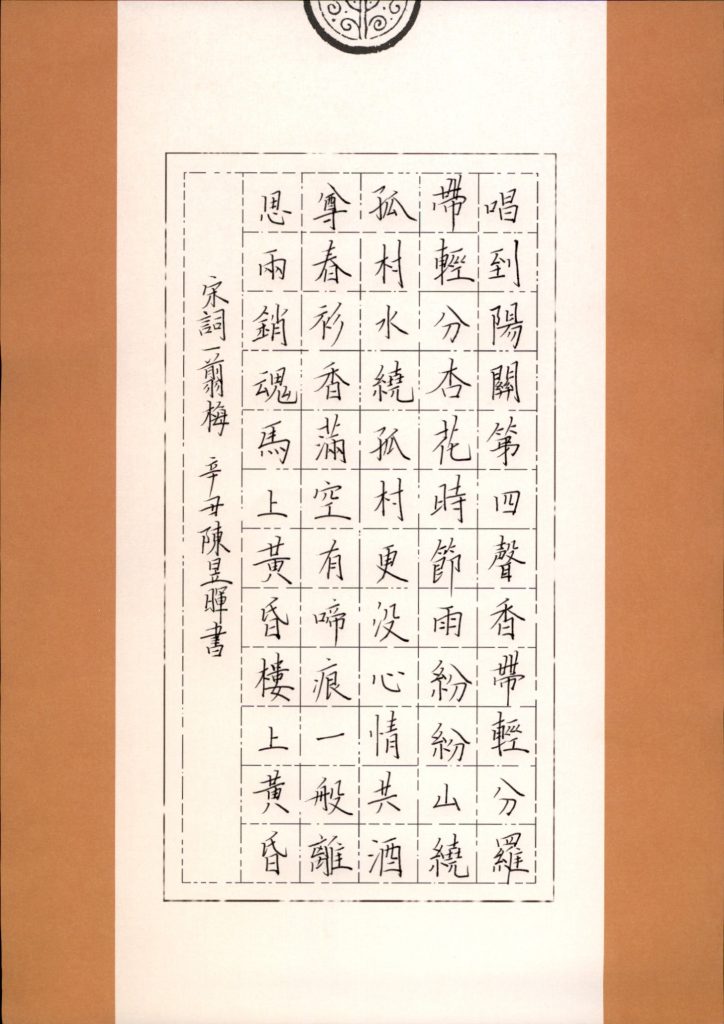 唱到陽關第四聲香帶輕分羅
帶輕分杏花時節雨紛紛山繞
孤村水繞孤村更没心情共酒
尊春衫香滿空有啼痕一般離
思兩銷魂馬上黃昏樓上黃昏
宋詞一翦梅 辛丑陳昱暉書